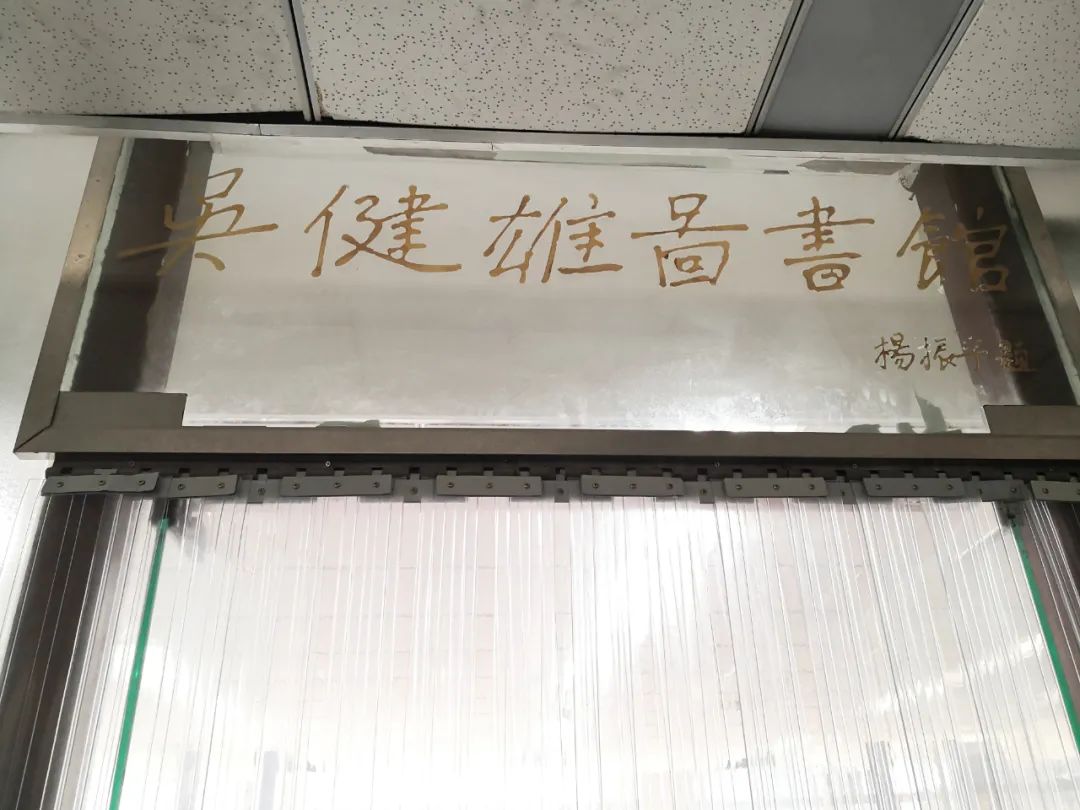 吳健雄圖書館
楊振寧題